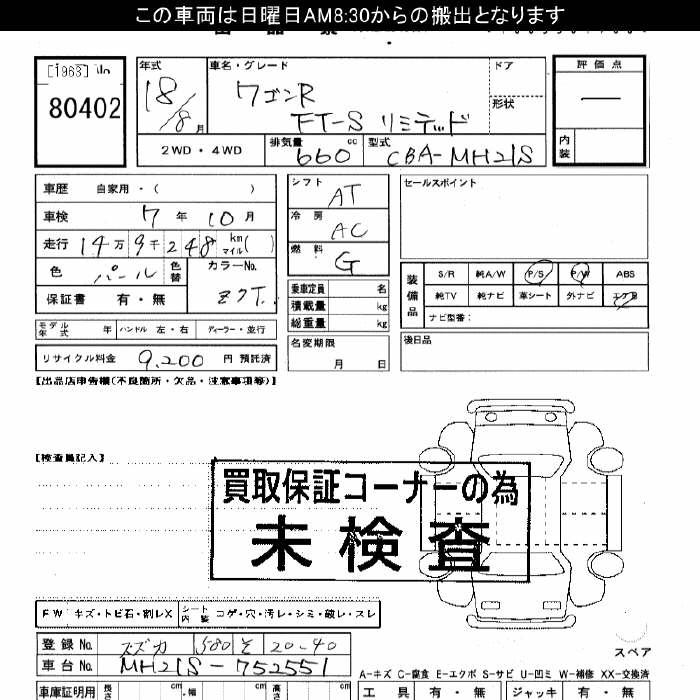 この車両は日曜日AM8:30からの搬出となります
[1963] No
80402
年式
18/8月
車名・グレード
ワゴンR
FT-S リミテッド
ドア
形状
評価点
—
内装
2WD・4WD
排気量 660 cc
型式 CBA-MH21S
車歴 自家用・( )
車検 7年10月
走行 14万9千248km マイル( )
色 パール 色替
カラーNo. ZCT.
保証書 有・無
シフト AT
冷房 AC
燃料 G
乗車定員 名
積載量 kg
総重量 kg
名変期限 月 日
セールスポイント
装備品
S/R 純A/W P/S P/W ABS
純TV 純ナビ 革シート 外ナビ エアB
ナビ型番:
後日品
モデル年式 年 ハンドル 左・右 ディーラー・並行
リサイクル料金 9,200 円 預託済
【出品店申告欄(不良箇所・欠品・注意事項等)】
【検査員記入】
買取保証コーナーの為
未検査
FW キズ・トビ石・割レX シート内装 コゲ・穴・汚レ・シミ・破レ・スレ
登録No. スズカ 580 そ 20-40
車台No. MH21S-752551
スペア
A-キズ C-腐食 E-エクボ S-サビ U-凹ミ W-補修 XX-交換済
車庫証明用 長さ cm 幅 cm 高さ cm
工具 有・無 ジャッキ 有・無